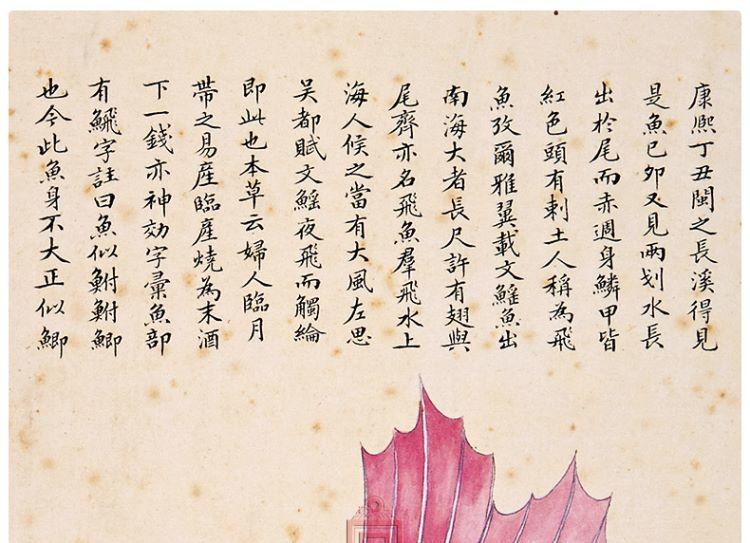 康熙丁丑閩之長溪得見
是魚已卯又見兩划水長
出於尾而赤週身鱗甲皆
紅色頭有刺土人稱為飛
魚攷爾雅翼載文鰩魚出
南海大者長尺許有翅與
尾齊亦名飛魚羣飛水上
海人候之當有大風左思
吳都賦文鰩夜飛而觸綸
即此也本草云婦人臨月
帶之易產臨產燒為末酒
下一錢亦神効字彙魚部
有䱀字註曰魚似鮒鮒鯽
也今此魚身不大正似鯽